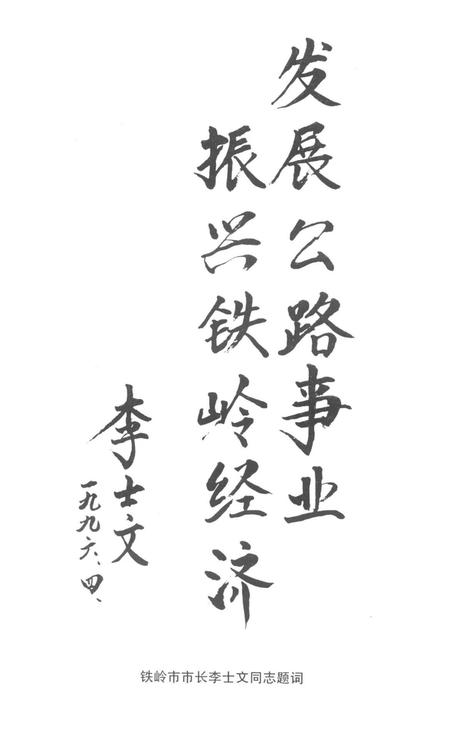 发展公路事业
振兴铁岭经济
李士文
一九九六、四、
铁岭市市长李士文同志题词